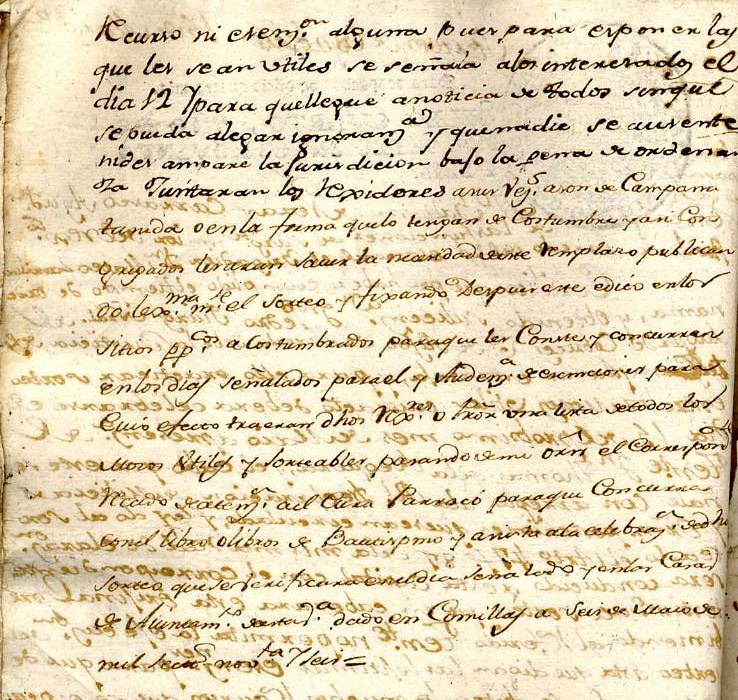 Recurso ni exem.on alguna pues para exponer las
que les sean utiles se señala a los interesados el
dia 12 y para que llegue a noticia de todos sin que
se pueda alegar ignoran.a y que nadie se ausente
ni des ampare la Jurisdicion bajo la pena de ordenan
za Juntaran los Rexidores a sus Vez.s a son de Campana
tanida o en la forma que lo tengan de Costumbre y asi Con
gregados leraran saver la novedad de este Remplazo publican
dolex.ma m.te el Sorteo y fixando Despues este edicto en los
sitios pp.cos a costumbrados para que les Conste y concurran
en los dias señalados para el y Audem.a de exenciones para
Cuio efecto traeran dhos Rex.res una lista de todos los
Mozos utiles y sorteables pasando de mi orn el Correspon
Recado de aten.n al Cura Parroco para que Concurra
con el libro o libros de Bautismo y asista a la celebraz.n de dho
Sorteo que se verificara en el dia señalado y en las Casas
de Aiuntam.to de esta d.a dado en Comillas a Seis de Maio de
mil setez.s nov.ta y seis =